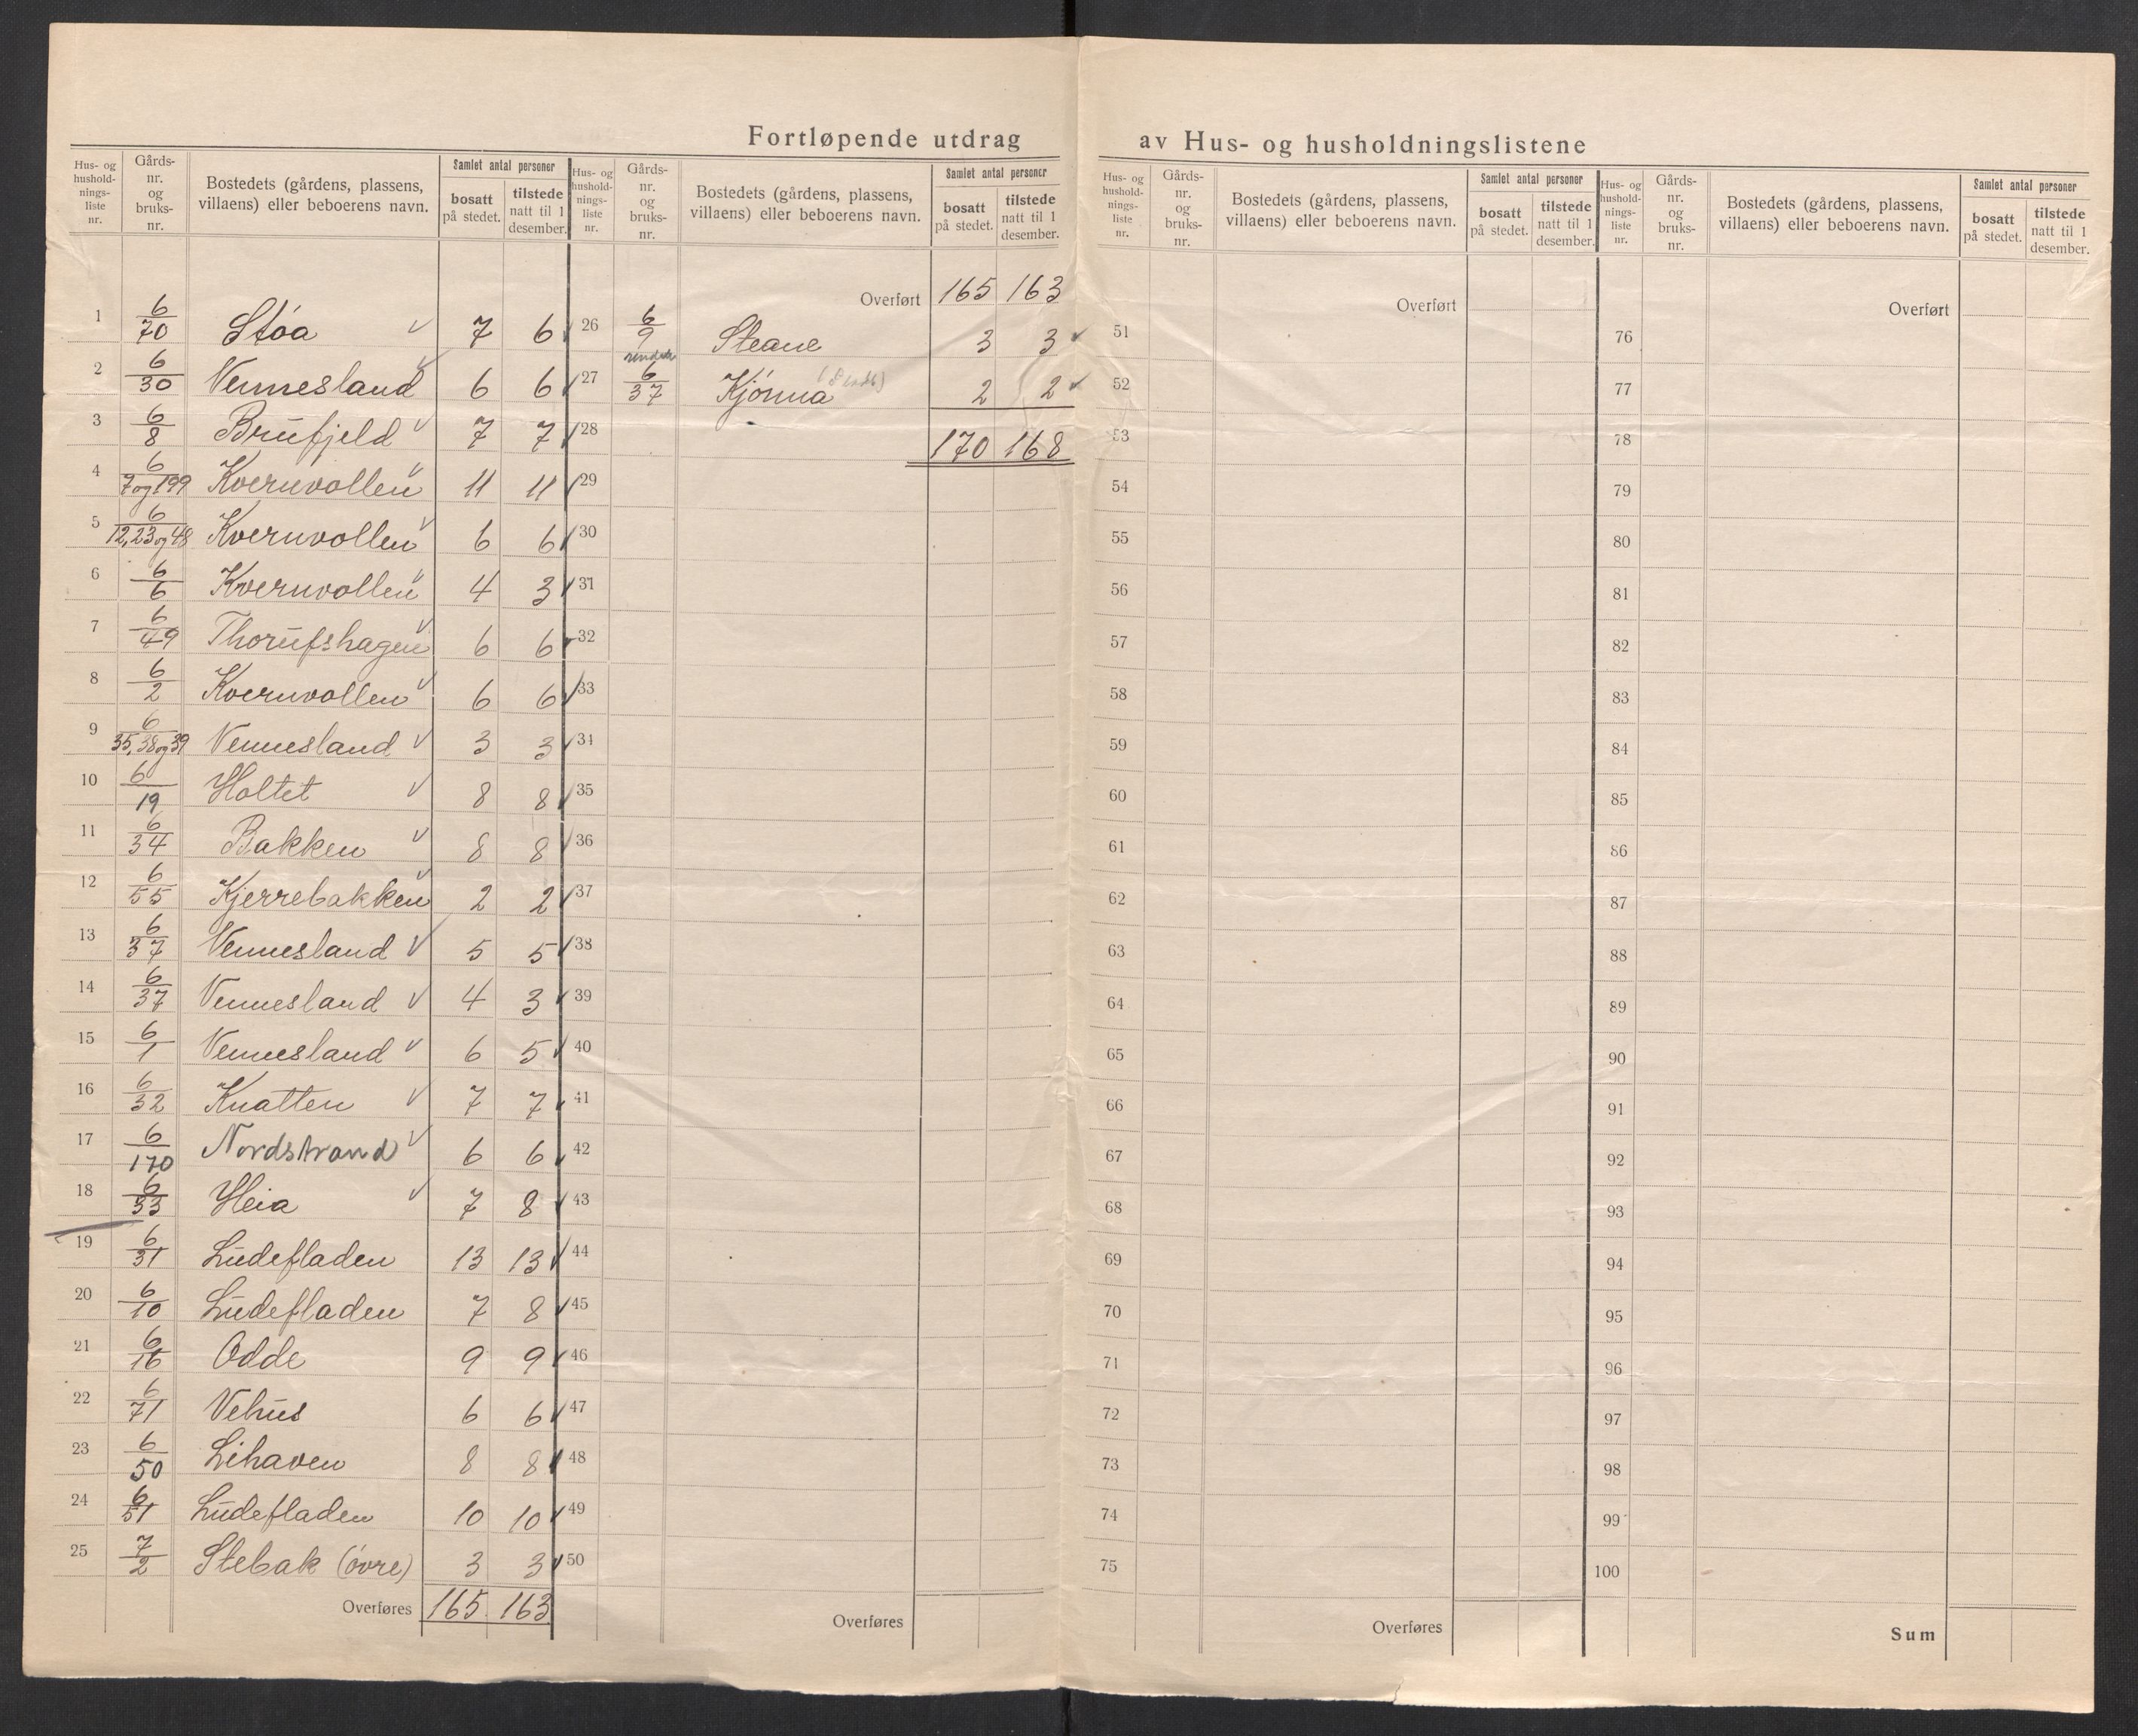 Fortløpende utdrag av Hus- og husholdningslistene
Hus- og husholdningsliste nr. | Gårdsnr. og bruksnr. | Bostedets (gårdens, plassens, villaens) eller beboerens navn. | Samlet antal personer | bosatt på stedet. | tilstede natt til 1 desember.
1 6/70 Støa 7 6
2 6/30 Vennesland 6 6
3 6/8 Brufjeld 7 7
4 6/7 og 199 Kvernvollen 11 11
5 6/12, 23 og 48 Kvernvollen 6 6
6 6/6 Kvernvollen 4 3
7 6/49 Thorufshagen 6 6
8 6/2 Kvernvollen 6 6
9 6/35, 38 og 39 Vennesland 3 3
10 6/19 Holtet 8 8
11 6/34 Bakken 8 8
12 6/55 Kjerrebakken 2 2
13 6/37 Vennesland 5 5
14 6/37 Vennesland 4 3
15 6/1 Vennesland 6 5
16 6/32 Knatten 7 7
17 6/170 Nordstrand 6 6
18 6/33 Heia 7 8
19 6/31 Ludefladen 13 13
20 6/10 Ludefladen 7 8
21 6/16 Odde 9 9
22 6/71 Vehus 6 6
23 6/50 Lihaven 8 8
24 6/51 Ludefladen 10 10
25 7/2 Stebak (övre) 3 3
Overføres 165 163
Hus- og husholdningsliste nr. | Gårdsnr. og bruksnr. | Bostedets (gårdens, plassens, villaens) eller beboerens navn. | Samlet antal personer | bosatt på stedet. | tilstede natt til 1 desember.
Overført 165 163
26 6/9 Steane 3 3
27 6/37 Kjønna 2 2
28 170 168
29
30
31
32
33
34
35
36
37
38
39
40
41
42
43
44
45
46
47
48
49
50
Overføres
Hus- og husholdningsliste nr. | Gårdsnr. og bruksnr. | Bostedets (gårdens, plassens, villaens) eller beboerens navn. | Samlet antal personer | bosatt på stedet. | tilstede natt til 1 desember.
Overført
51
52
53
54
55
56
57
58
59
60
61
62
63
64
65
66
67
68
69
70
71
72
73
74
75
Overføres
Hus- og husholdningsliste nr. | Gårdsnr. og bruksnr. | Bostedets (gårdens, plassens, villaens) eller beboerens navn. | Samlet antal personer | bosatt på stedet. | tilstede natt til 1 desember.
Overført
76
77
78
79
80
81
82
83
84
85
86
87
88
89
90
91
92
93
94
95
96
97
98
99
100
Sum